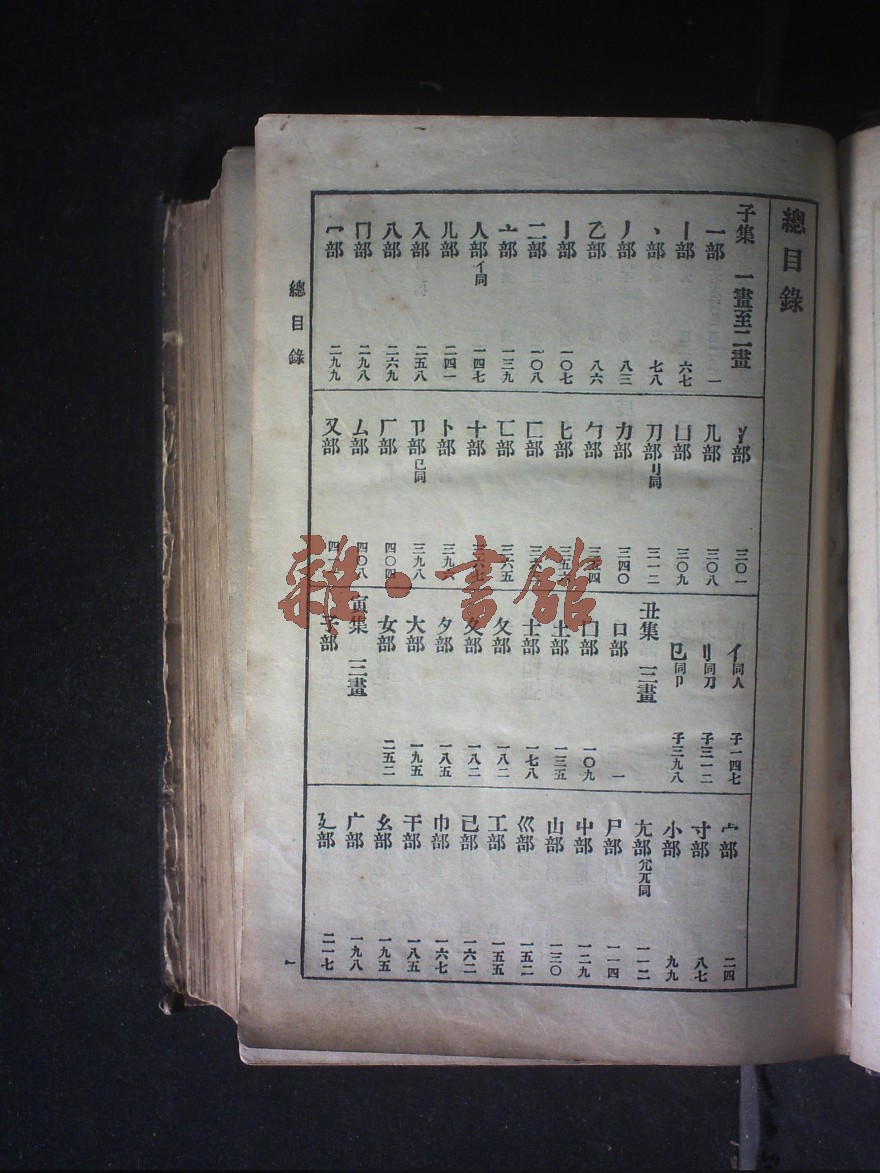 總目錄
子集 一畫至二畫
一部 一
丨部 六七
丶部 七八
丿部 八三
乙部 八六
亅部 一〇七
二部 一〇八
亠部 一三九
人部 亻同 一四七
儿部 二四一
入部 二五八
八部 二六九
冂部 二九八
冖部 二九九
冫部 三〇一
几部 三〇八
凵部 三〇九
刀部 刂同 三一二
力部 三四〇
勹部
匕部
匚部
匸部 三六五
十部 三六七
卜部
卩部 㔾同 三九八
厂部 四〇四
厶部 四〇八
又部
亻同人 子一四七
刂同刀 子三一二
㔾同卩 子三九八
丑集 三畫
口部 一
囗部 一〇九
土部 一三五
士部 一七八
夂部 一八二
夊部 一八二
夕部 一八五
大部 一九五
女部 二五二
寅集 三畫
子部
宀部 二四
寸部 八七
小部 九九
尢部 尣兀同 一一二
尸部 一一四
屮部 一二九
山部 一三〇
巛部 一五二
工部 一五五
己部 一六二
巾部 一六七
干部 一八五
幺部 一九五
广部 一九八
廴部 二一七
總目錄
一
雜·書館